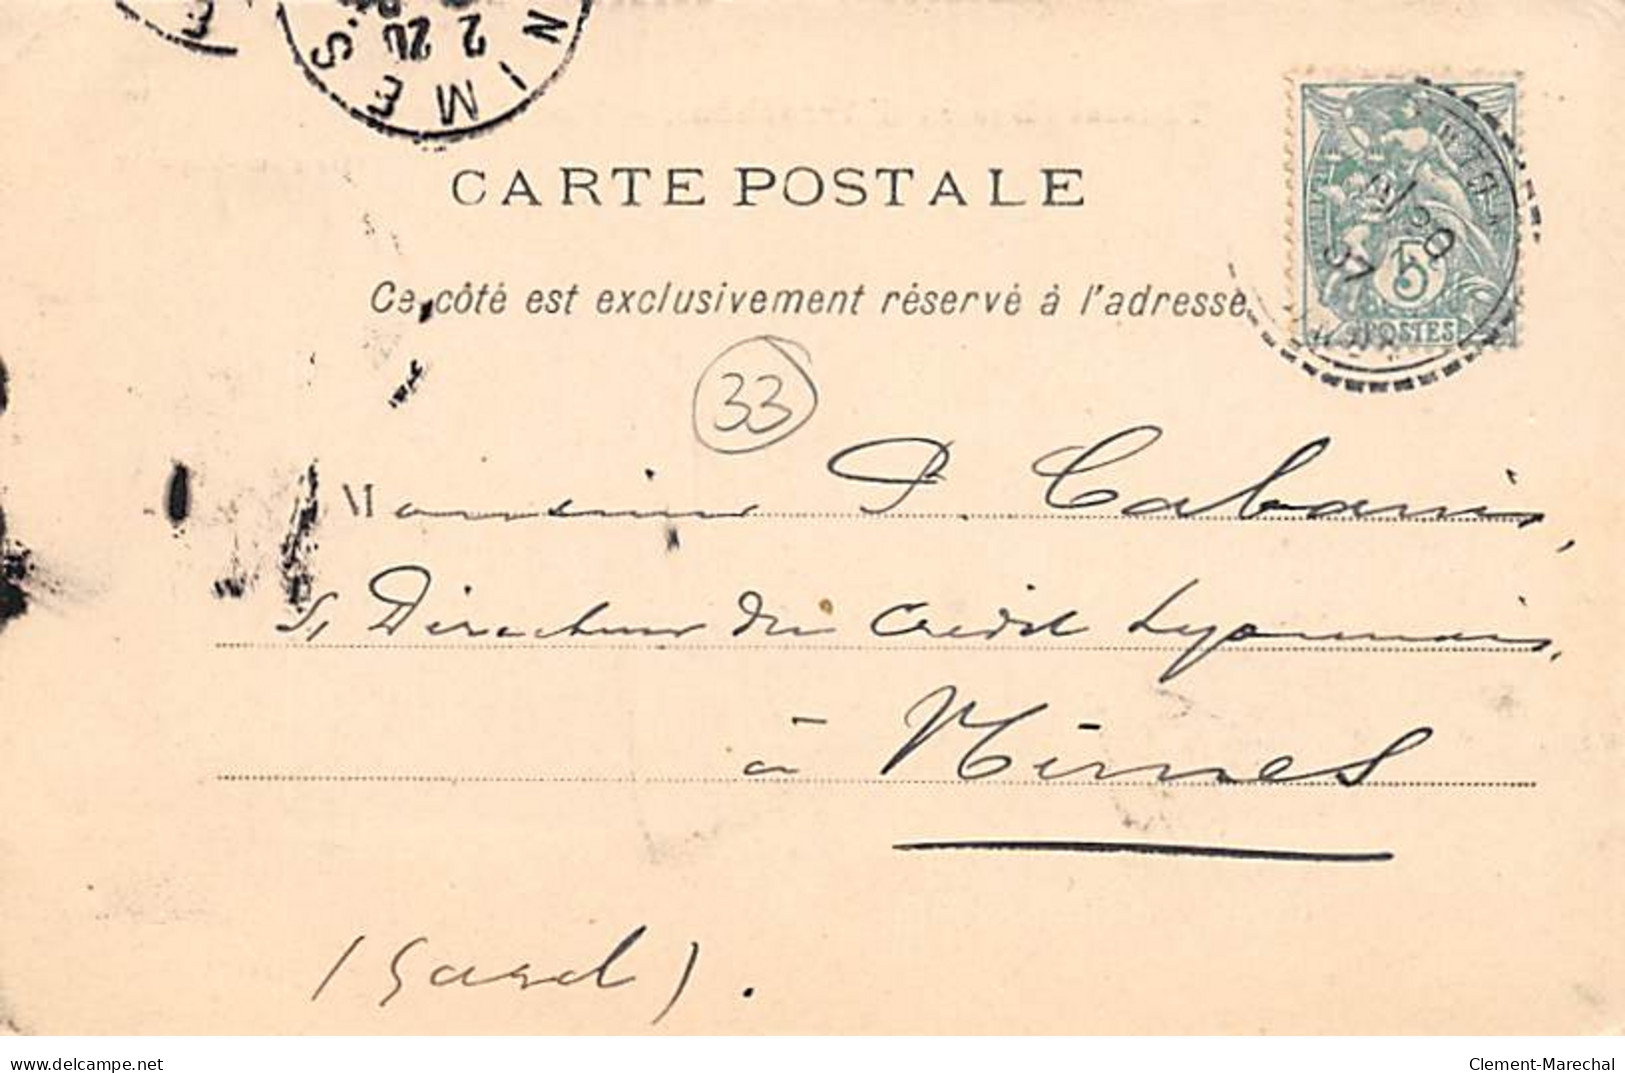 NIMES
2 20
CARTE POSTALE
Ce côté est exclusivement réservé à l'adresse
5
POSTES
33
Monsieur P. Cabanis,
s, Directeur du Crédit Lyonnais,
à Nîmes
(Gard).
delcampe.net
Clement-Marechal